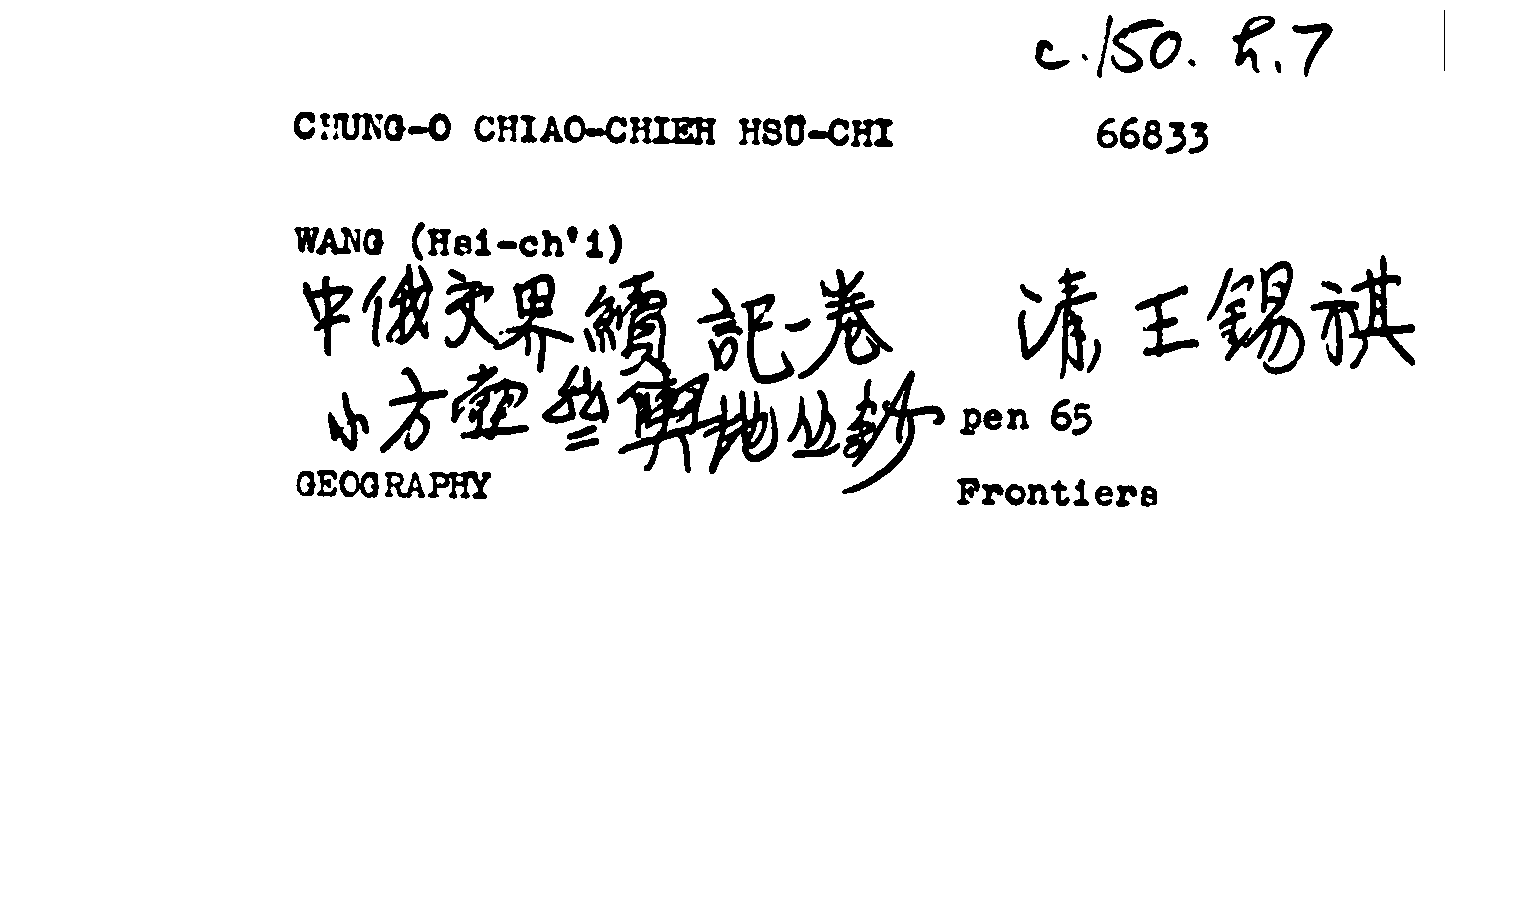 c.150. h.7
CHUNG-O CHIAO-CHIEH HSÜ-CHI 66833
WANG (Hsi-ch'i)
中俄交界續記一卷 清 王錫祺
小方壺齋輿地丛鈔 pen 65
GEOGRAPHY Frontiers